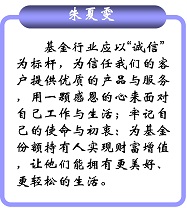 朱夏雯
基金行业应以“诚信”
为标杆，为信任我们的客
户提供优质的产品与服务
，用一颗感恩的心来面对
自己工作与生活；牢记自
己的使命与初衷：为基金
份额持有人实现财富增值
，让他们能拥有更美好、
更轻松的生活。